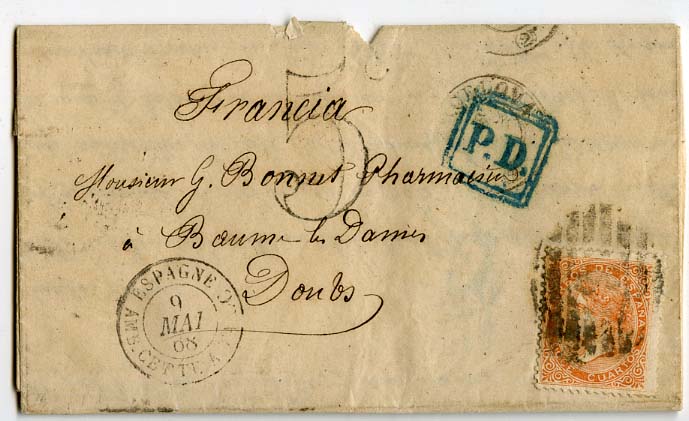 Francia
5
P.D.
Monsieur G. Bonnet Pharmacien
à Baume les Dames
Doubs
ESPAGNE
9
MAI
68
AMB. CETTE A
DE ESPAÑA
CUARTOS